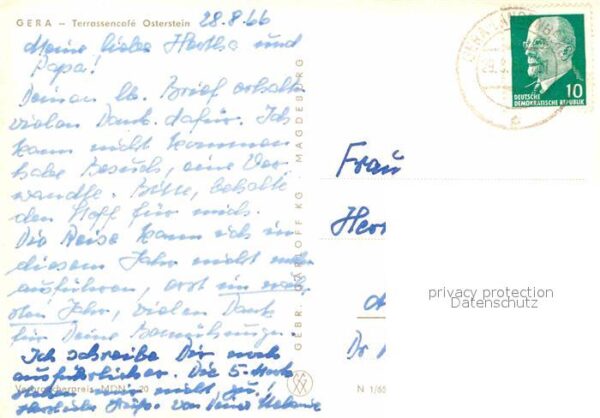 GERA – Terrassencafé Osterstein
28.8.66
Meine liebe Hertha und
Papa!
Deinen lb. Brief erhalten
vielen Dank dafür. Ich
kann nicht kommen
habe Besuch, eine Ver
wandte. Bitte, behalte
den Stoff für mich.
Die Reise kann ich in
diesem Jahr nicht mehr
ausführen, erst im näch
sten Jahr, vielen Dank
für Deine Bemühungen.
Ich schreibe Dir noch
ausführlicher. Die 5 Mark
stehen mir nicht zu!
Herzliche Grüße von Deiner
Verbraucherpreis MDN -,20
GEBR. GARLOFF KG · MAGDEBURG
N 1/60
10
DEUTSCHE
DEMOKRATISCHE REPUBLIK
Frau
privacy protection
Datenschutz